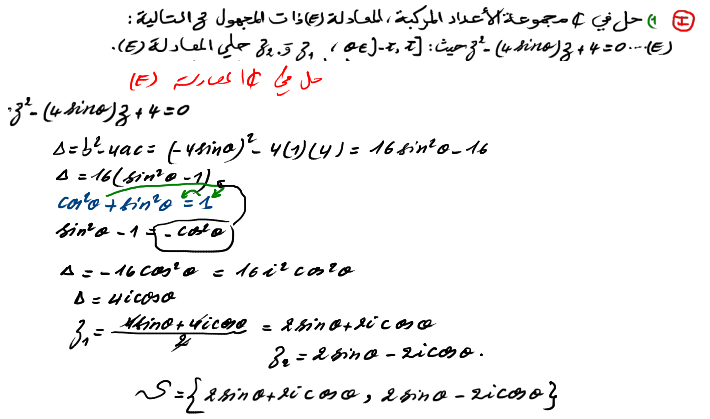 I) 1) حل في ℂ مجموعة الأعداد المركبة، المعادلة (E) ذات المجهول z التالية:
(E)... z² - (4 sinθ)z + 4 = 0 حيث: θ∈]-π, π[ ، z₁ و z₂ حلي المعادلة (E).
حل في ℂ المعادلة (E)
z² - (4 sinθ)z + 4 = 0
Δ = b² - 4ac = (-4 sinθ)² - 4(1)(4) = 16 sin²θ - 16
Δ = 16(sin²θ - 1)
cos²θ + sin²θ = 1
sin²θ - 1 = -cos²θ
Δ = -16 cos²θ = 16 i² cos²θ
Δ = 4 i cosθ
z₁ = (4 sinθ + 4 i cosθ)/2 = 2 sinθ + 2i cosθ
z₂ = 2 sinθ - 2i cosθ.
S = {2 sinθ + 2i cosθ , 2 sinθ - 2i cosθ}